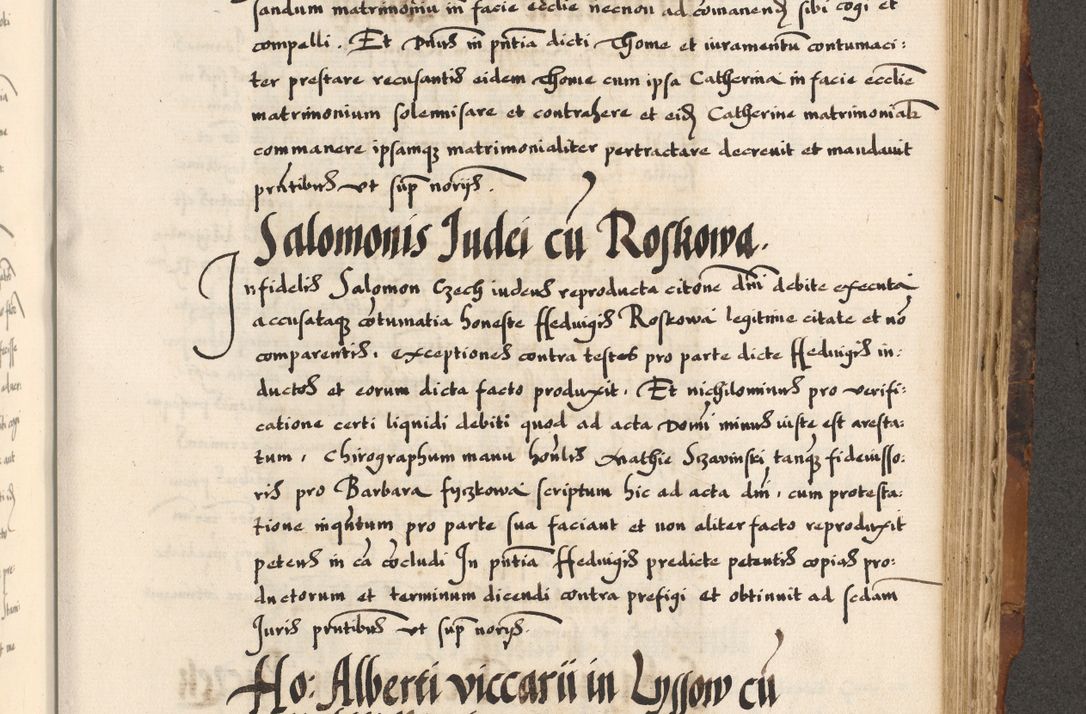 sandum matrimoniu in facie ecclie necnon ad comanend sibi cogi et
compelli. Et Dnus in pntia dicti Thome et iuramentu contumaci:
ter prestare recusantis eidem Thome cum ipsa Catherina in facie ecclie
matrimonium solennisare et contrahere et eid Catherine matrimonialr
commanere ipsamq matrimonialiter pertractare decreuit et mandauit
prntibus vt sup norijs.
Salomonis Iudei cu Roskowa.
Infidelis Salomon Czech iudeus reproducta citone dni debite executa
accusataq cotumatia honeste Heduigis Roskowa legitime citate et no
comparentis, exceptiones contra testes pro parte dicte Heduigis in:
ductos et eorum dicta facto produxit. Et nichilominus pro verifi:
catione certi liquidi debiti quod ad acta Domi minus iuste est aresta:
tum, Chirographum manu honlis Mathie Sczavinski tanq fideiusso:
ris pro Barbara fyczkowa scriptum hic ad acta dni, cum protesta:
tione inqntum pro parte sua faciant et non aliter facto reproduxit
petens in ca cocludi In pntia Heduigis predicte petentis copias pro:
ductorum et terminum dicendi contra prefigi et obtinuit ad scdam
Iuris prntibus vt sup norijs.
Ho: Alberti viccarii in Lyssow cu